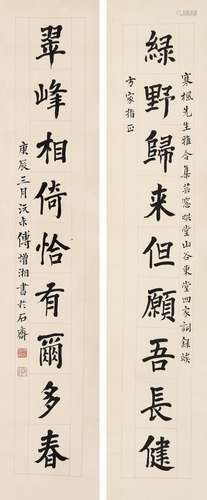 寒楓先生雅合集窓堂山谷東堂四家詞録
綠野歸来但願吾長健
方家指正
翠峰相倚恰有爾多春
庚辰三月沅尗傅增湘書於石齋